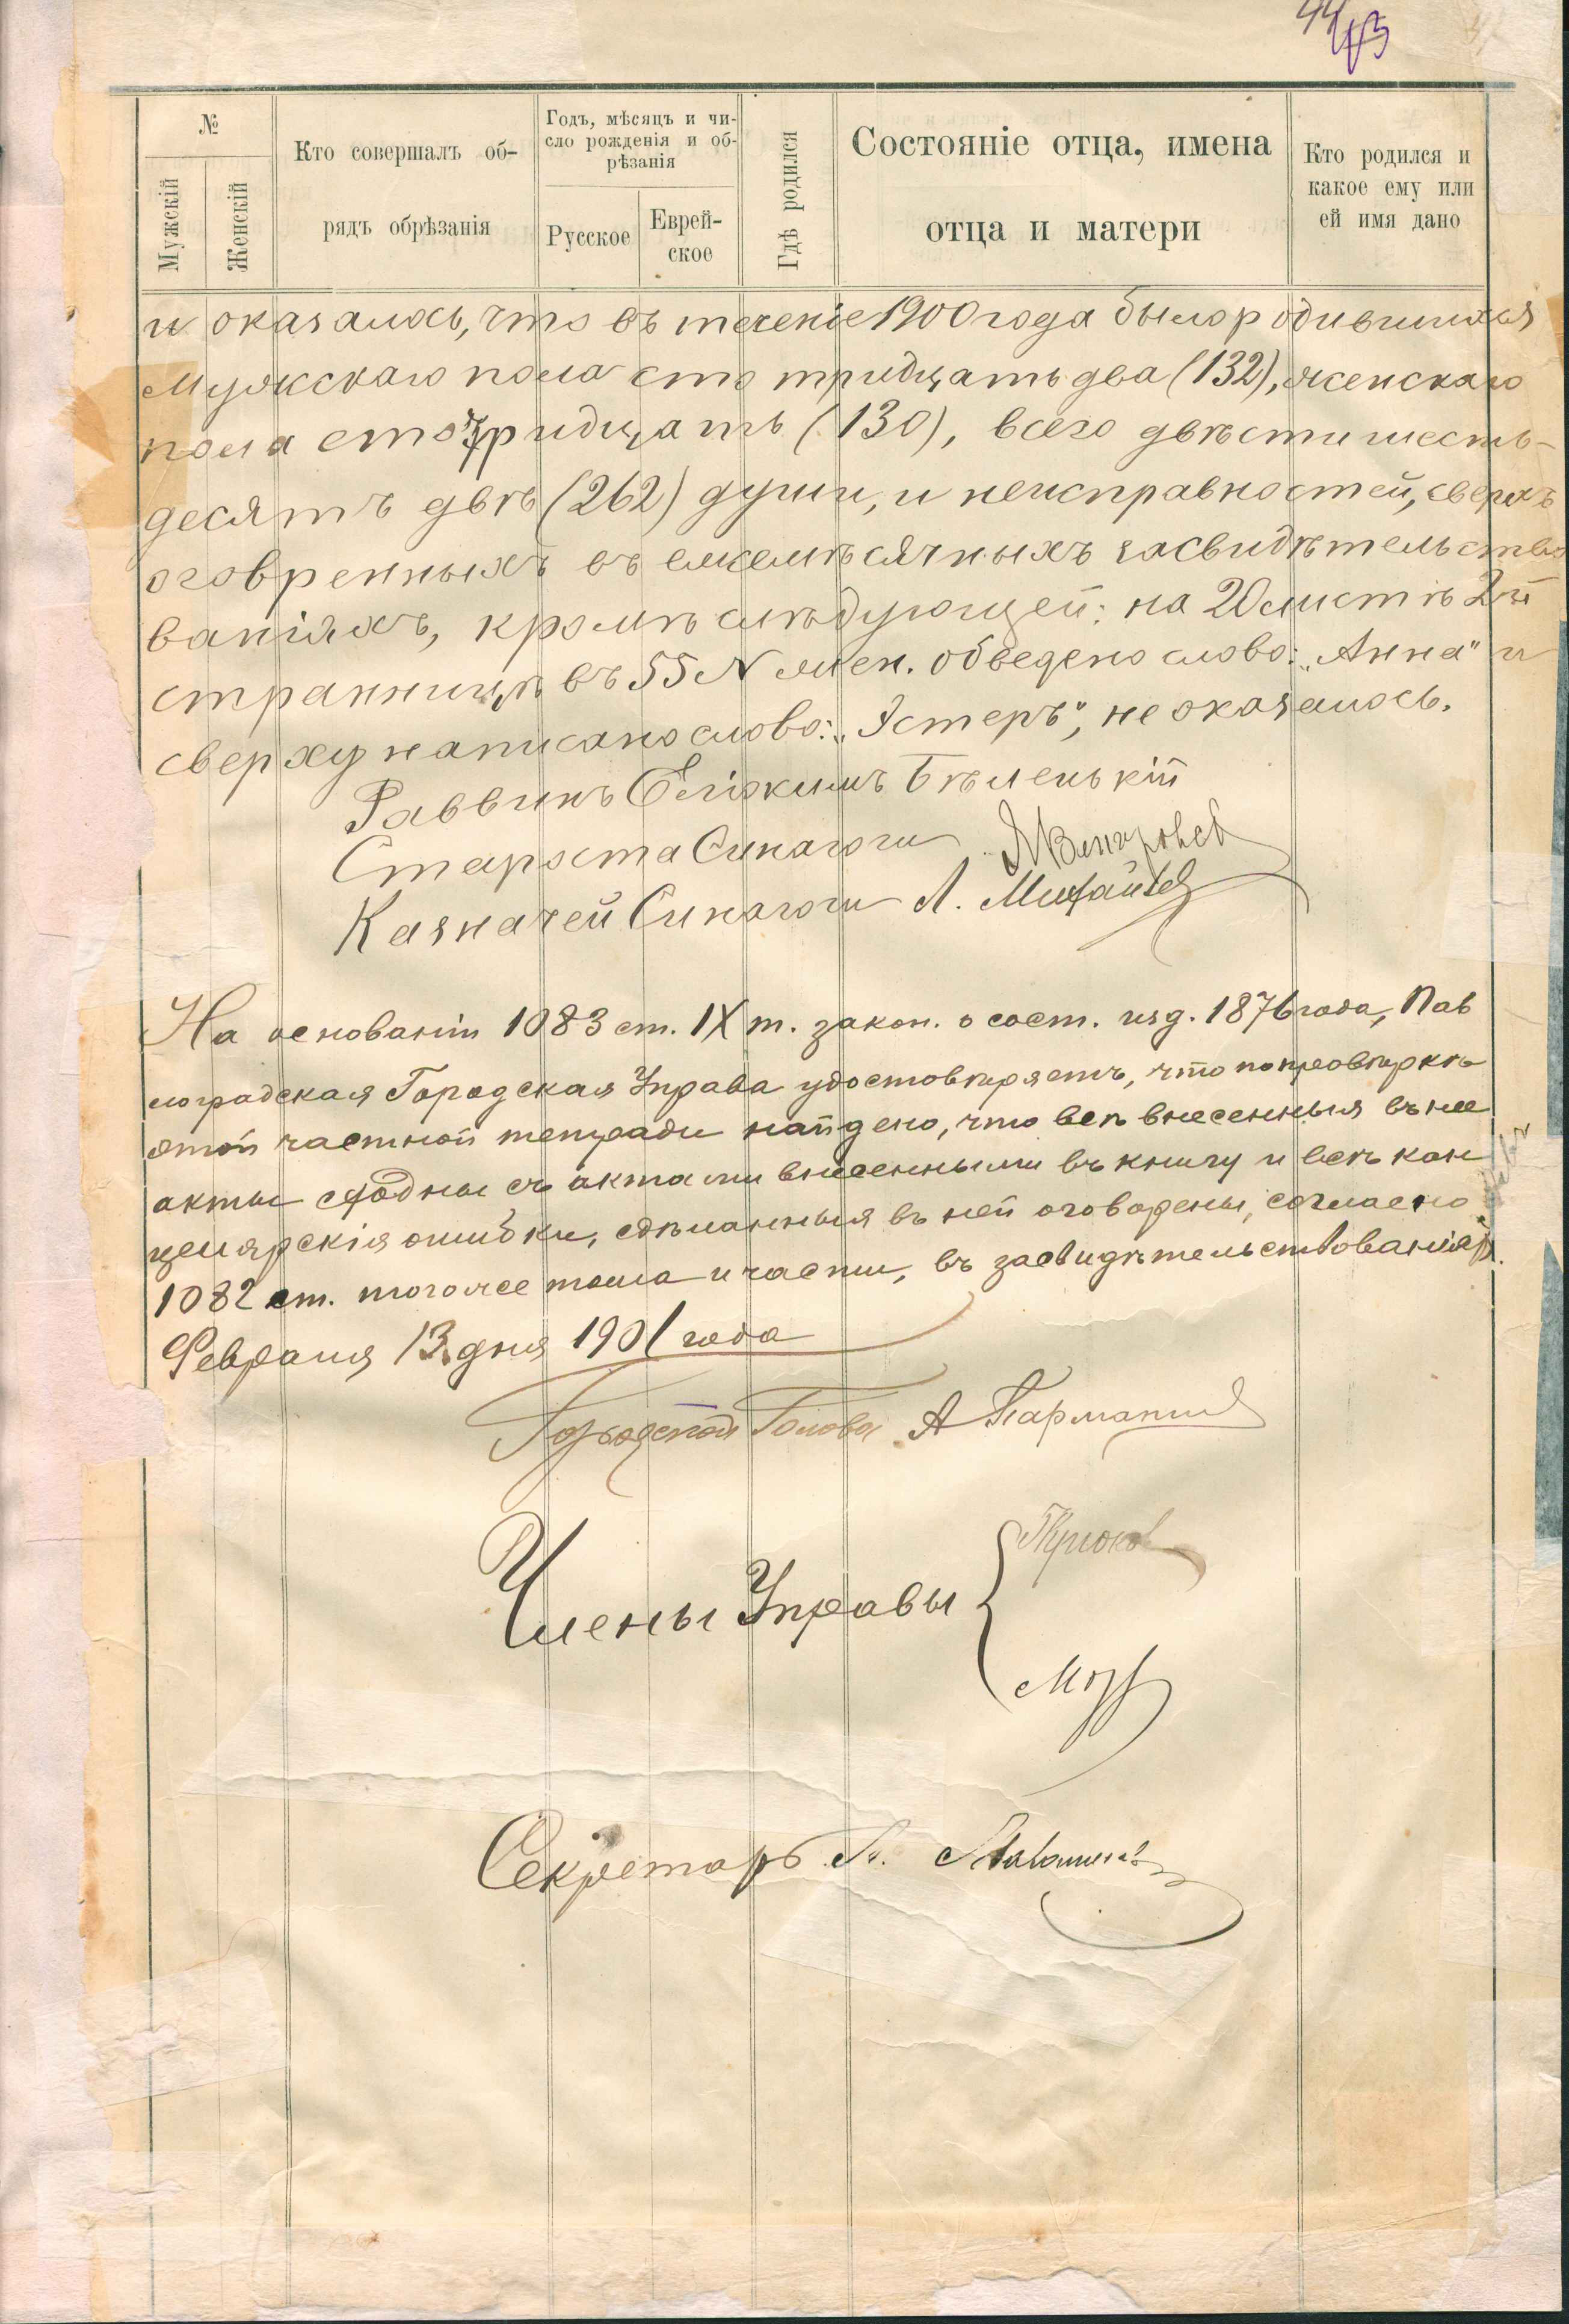 44
43
№
Мужскій
Женскій
Кто совершалъ об-
рядъ обрѣзанія
Годъ, мѣсяцъ и чи-
сло рожденія и об-
рѣзанія
Русское
Еврей-
ское
Гдѣ родился
Состояніе отца, имена
отца и матери
Кто родился и
какое ему или
ей имя дано
и оказалось, что въ теченіе 1900 года было родившихся
мужскаго пола сто тридцать два (132), женскаго
пола сто тридцать (130), всего двѣсти шесть-
десятъ двѣ (262) души, и неисправностей, сверхъ
оговренныхъ въ ежемѣсячныхъ засвидѣтельство
ваніяхъ, кромѣ слѣдующей: на 20 листѣ 2-й
странницѣ въ 55 N жен. обведено слово: „Анна" и
сверху написано слово: „Эстеръ", не оказалось.
Раввинъ Еліокимъ Бѣленькій
Староста Синагоги
Казначей Синагоги Л.
На основаніи 1083 ст. IX т. закон. о сост. изд. 1876 года, Пав
лоградская Городская Управа удостовѣряетъ, что по провѣркѣ
этой частной тетради найдено, что всѣ внесенныя въ нее
акты сходны съ актами внесенными въ книгу и всѣ кан
целярскія ошибки, сдѣланныя въ ней оговорены, согласно
1082 ст. того же тома и части, въ засвидѣтельствованіях.
Февраля 13 дня 1901 года
Городской Голова А
Члены Управы
Секретарь